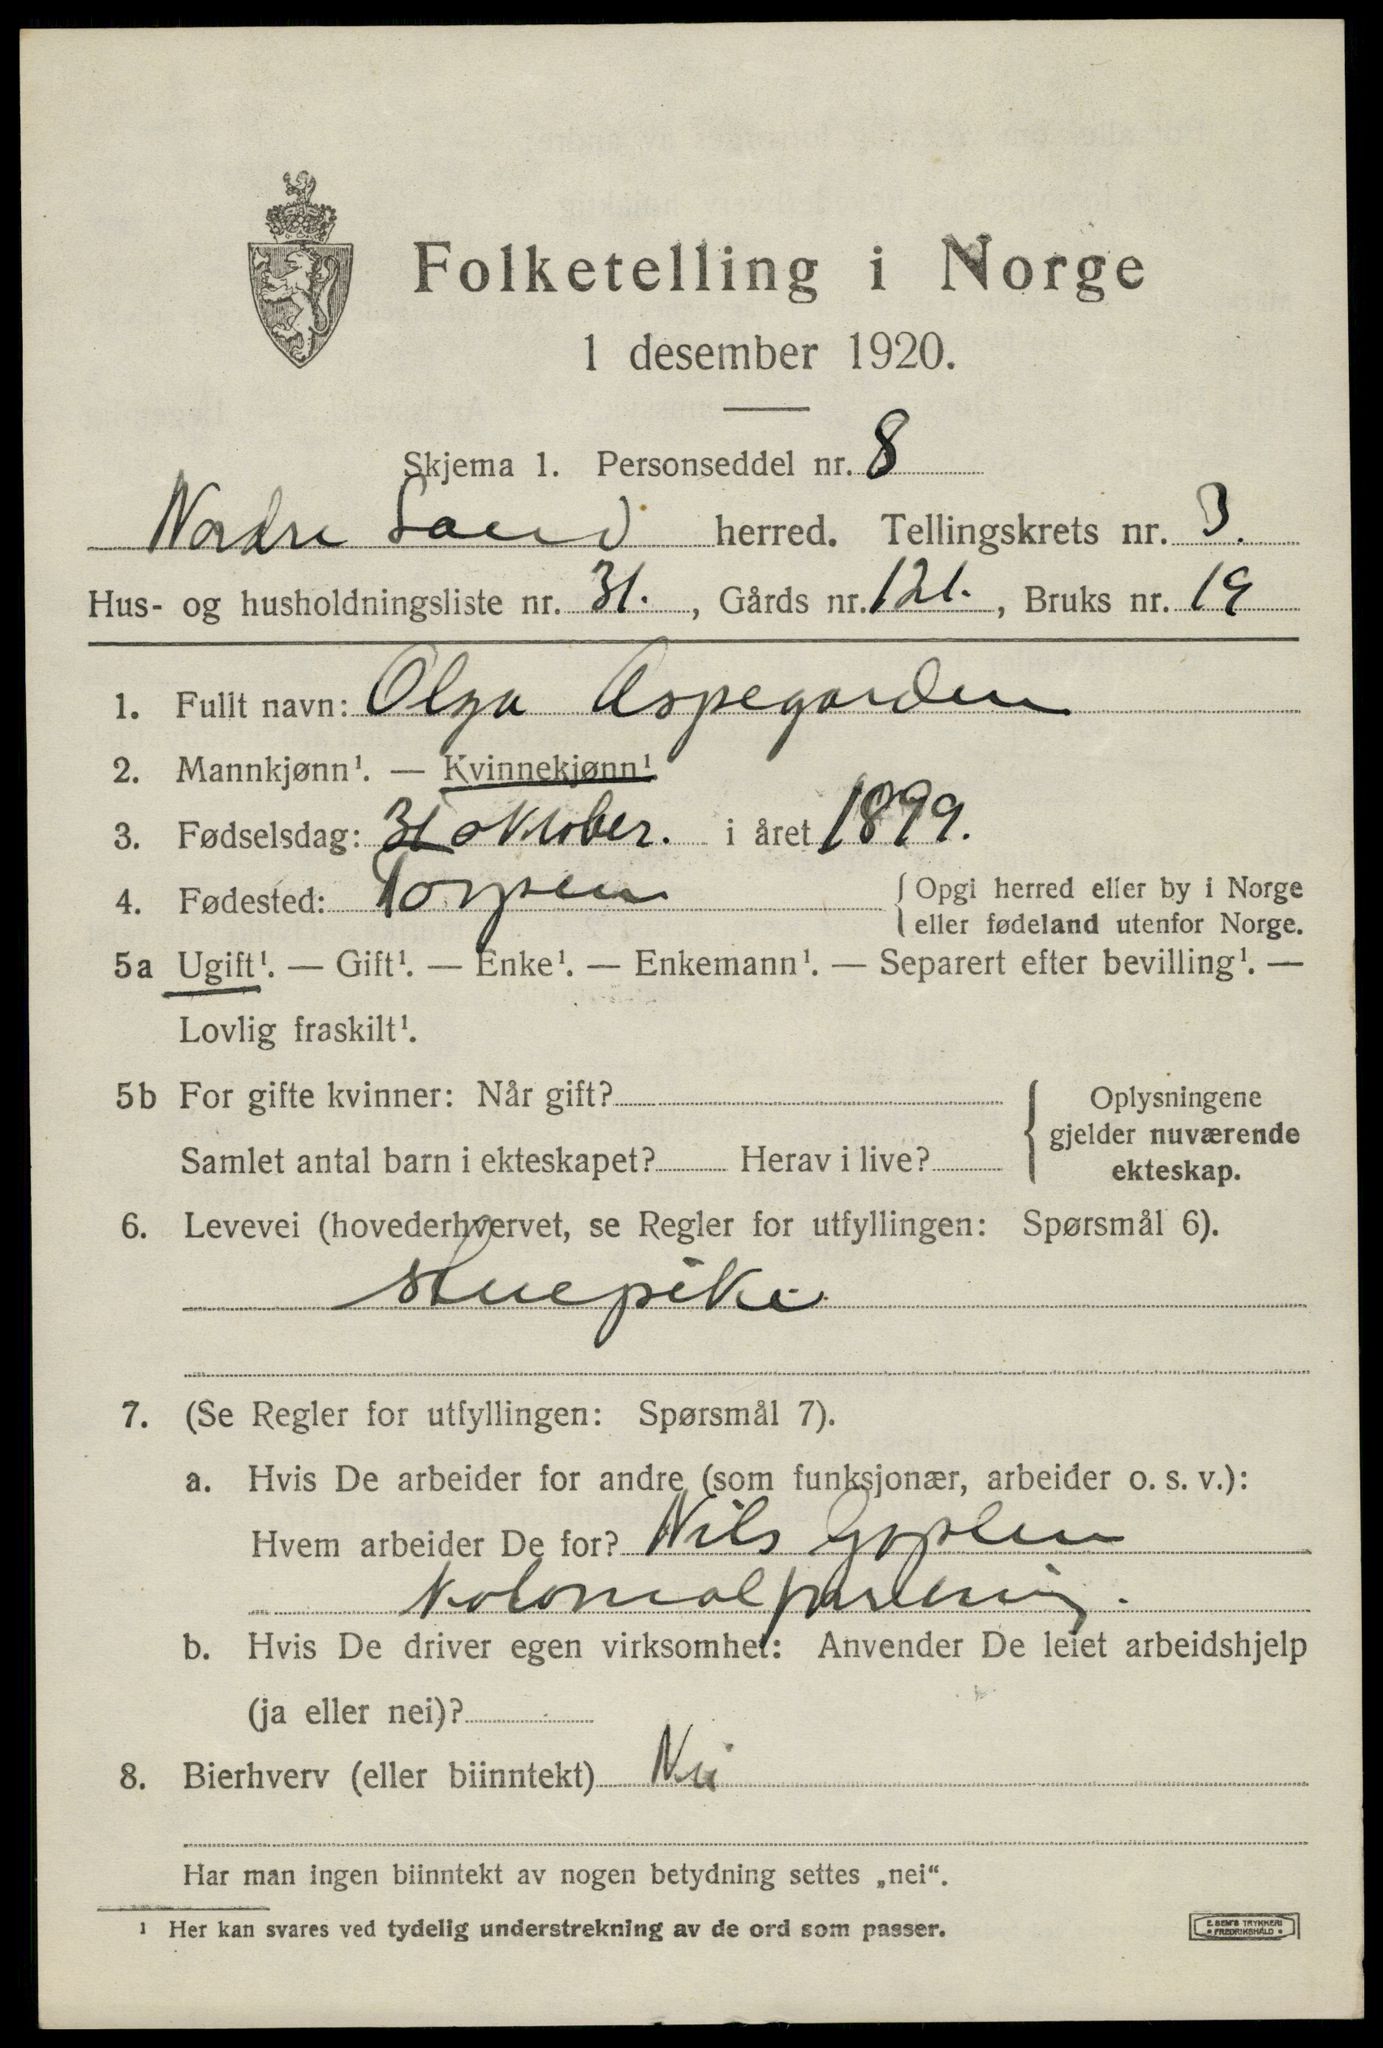 Folketelling i Norge
1 desember 1920.
Skjema 1. Personseddel nr. 8
Nordre Land herred. Tellingskrets nr. 3.
Hus- og husholdningsliste nr. 31. , Gårds nr. 121. , Bruks nr. 19
1. Fullt navn: Olga Aspegarden
2. Mannkjønn¹. — Kvinnekjønn¹
3. Fødselsdag: 31 oktober. i året 1899.
4. Fødested: Torpen { Opgi herred eller by i Norge
eller fødeland utenfor Norge.
5a Ugift¹. — Gift¹. — Enke¹. — Enkemann¹. — Separert efter bevilling¹. —
Lovlig fraskilt¹.
5b For gifte kvinner: Når gift?
Samlet antal barn i ekteskapet? Herav i live?
{ Oplysningene
gjelder nuværende
ekteskap.
6. Levevei (hovederhvervet, se Regler for utfyllingen: Spørsmål 6).
Stuepike.
7. (Se Regler for utfyllingen: Spørsmål 7).
a. Hvis De arbeider for andre (som funksjonær, arbeider o. s. v.):
Hvem arbeider De for? Nils
b. Hvis De driver egen virksomhet: Anvender De leiet arbeidshjelp
(ja eller nei)?
8. Bierhverv (eller biinntekt) Nei
Har man ingen biinntekt av nogen betydning settes „nei“.
¹ Her kan svares ved tydelig understrekning av de ord som passer.
E. SEM'S TRYKKERI
• FREDRIKSHALD •